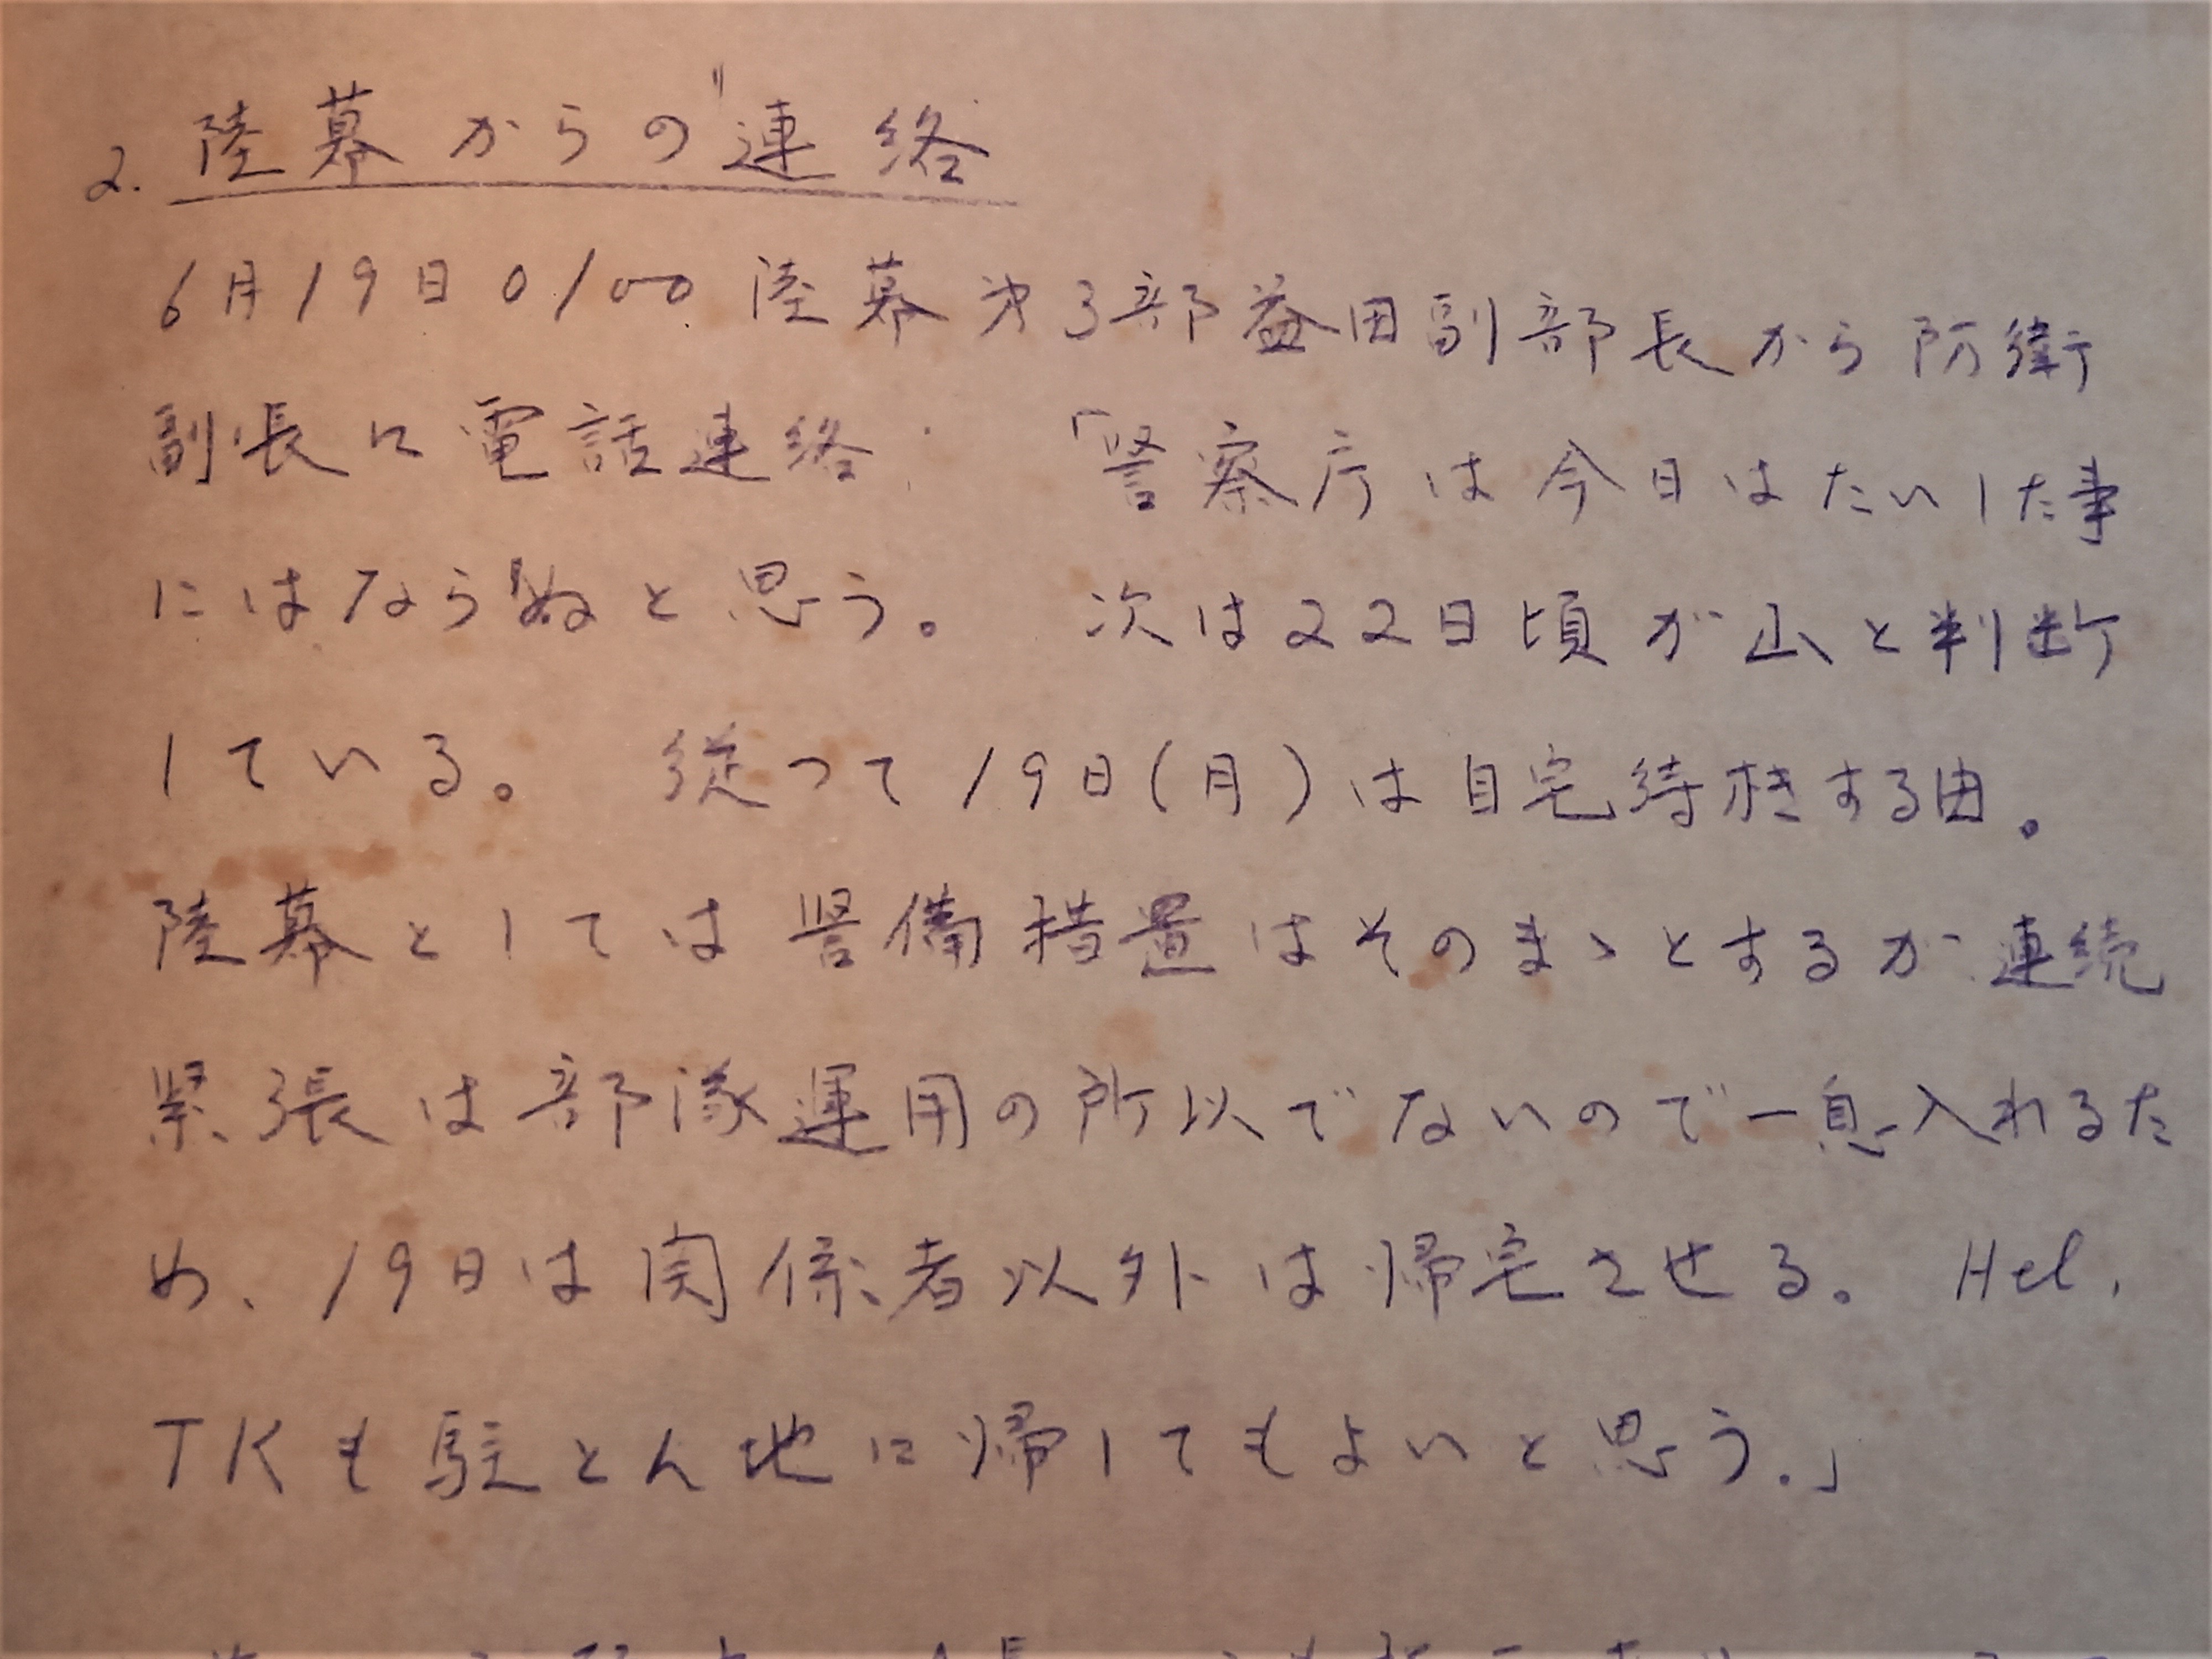 2. 陸幕からの連絡
6月19日0100 陸幕才3部益田副部長から防衛
副長に電話連絡: 「警察庁は今日はたいした事
にはならぬと思う。 次は22日頃が山と判断
している。 従つて19日(月)は自宅待機する由。
陸幕としては警備措置はそのまゝとするが連続
緊張は部隊運用の所以でないので一息入れるた
め、19日は関係者以外は帰宅させる。Hel,
TKも駐とん地に帰してもよいと思う.」